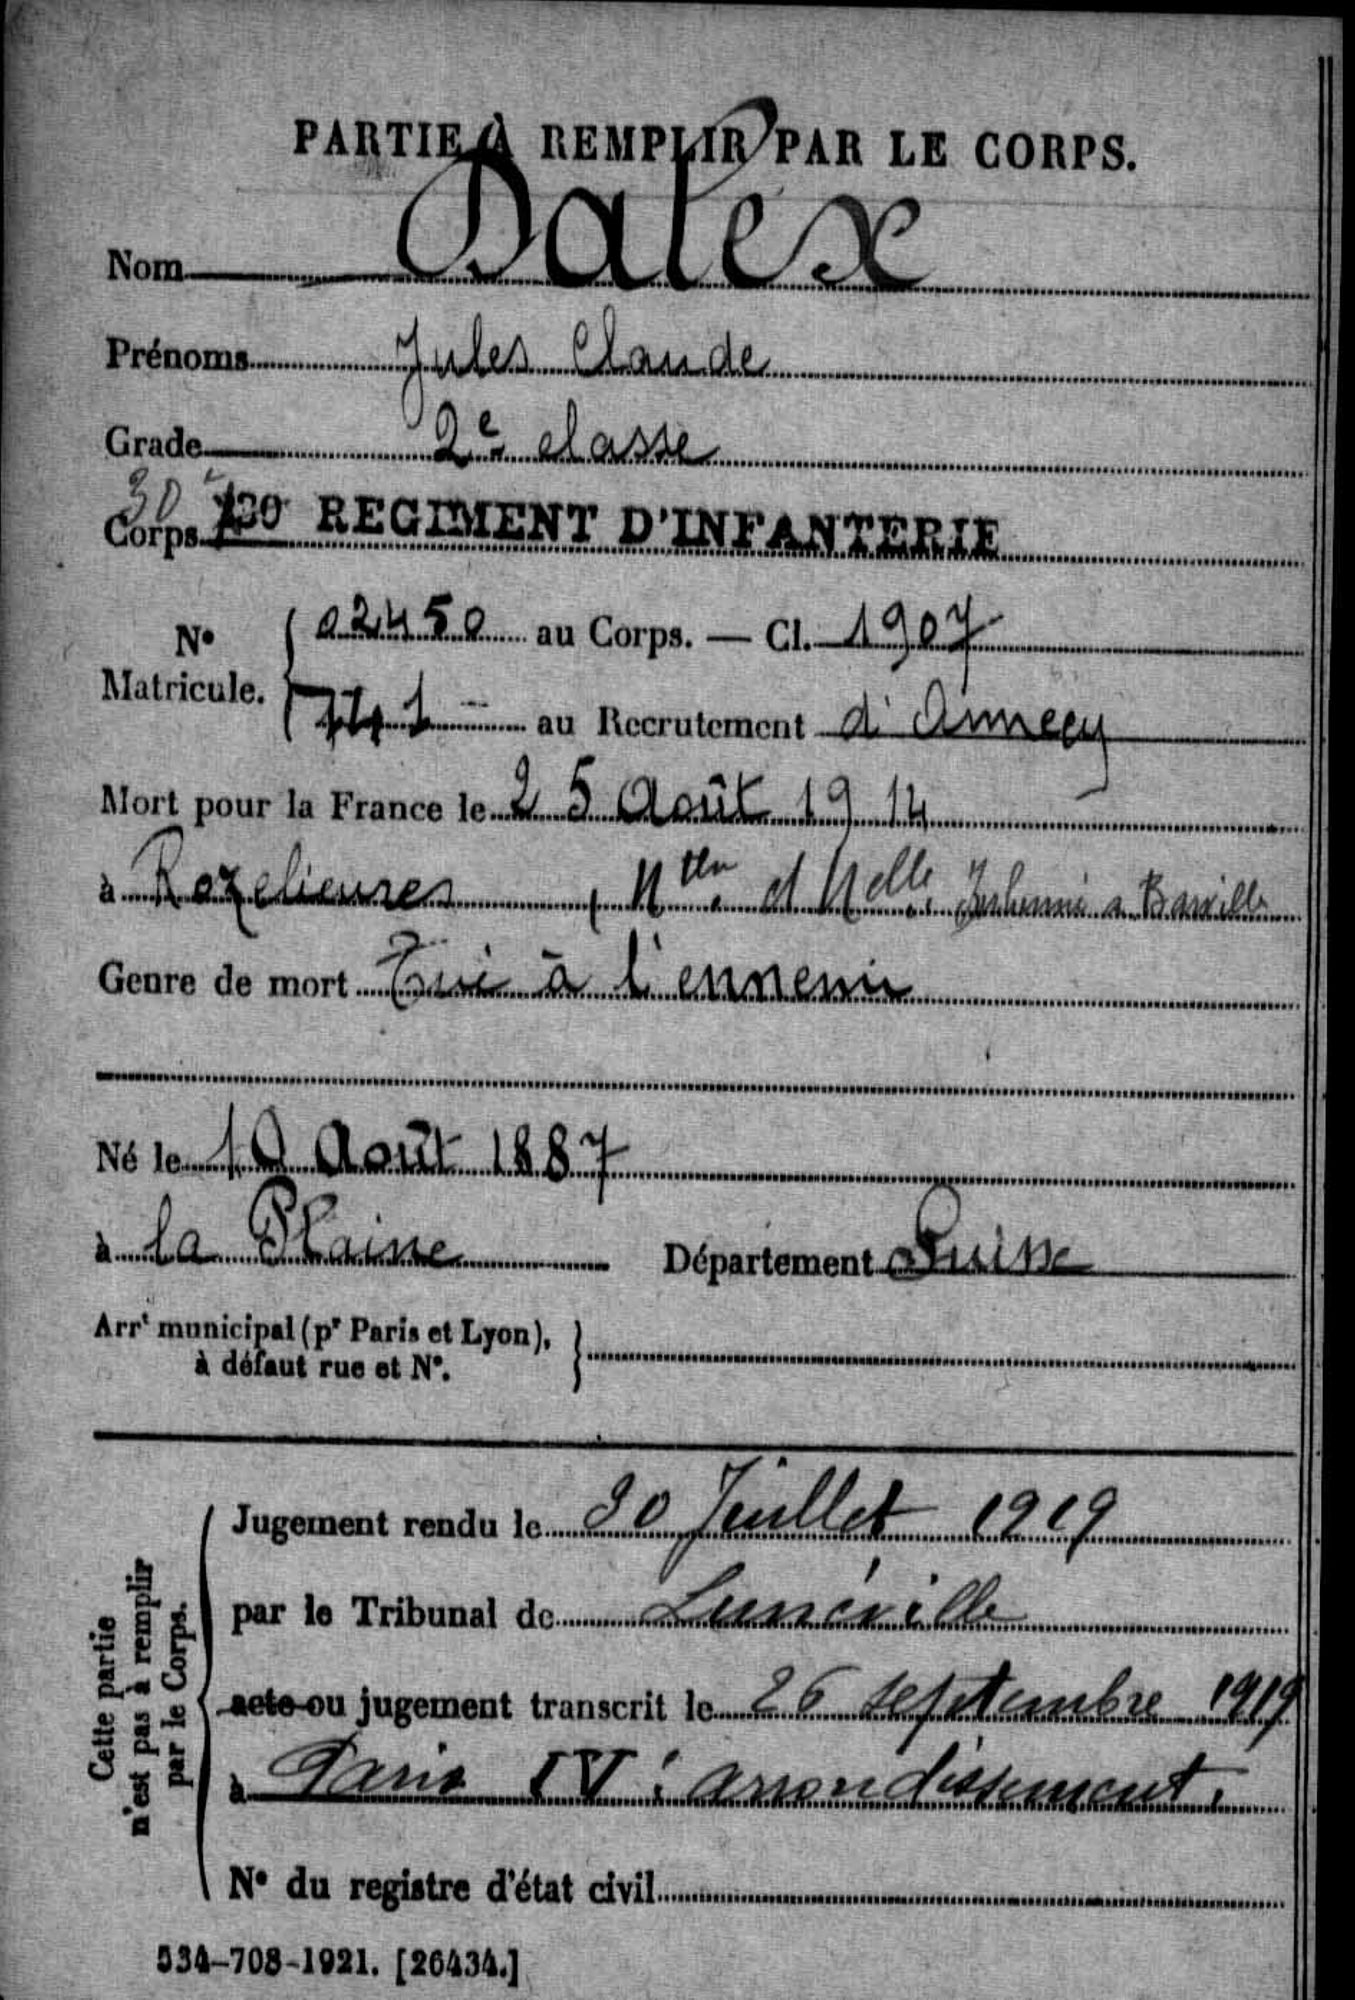 PARTIE À REMPLIR PAR LE CORPS.
Nom Dalex
Prénoms Jules Claude
Grade 2e classe
30e
Corps 230 REGIMENT D'INFANTERIE
No Matricule. { 02450 au Corps. — Cl. 1907
741 au Recrutement d'Annecy
Mort pour la France le 25 Août 1914
à Rozelieures, Mthe et Melle. Inhumé à Barville
Genre de mort Tué à l'ennemi
Né le 10 Août 1887
à la Plaine Département Suisse
Arrt municipal (pr Paris et Lyon),
à défaut rue et No. }
Cette partie n'est pas à remplir par le Corps.
Jugement rendu le 30 Juillet 1919
par le Tribunal de Lunéville
acte ou jugement transcrit le 26 septembre 1919
à Paris IVe arrondissement.
No du registre d'état civil
534-708-1921. [26434.]